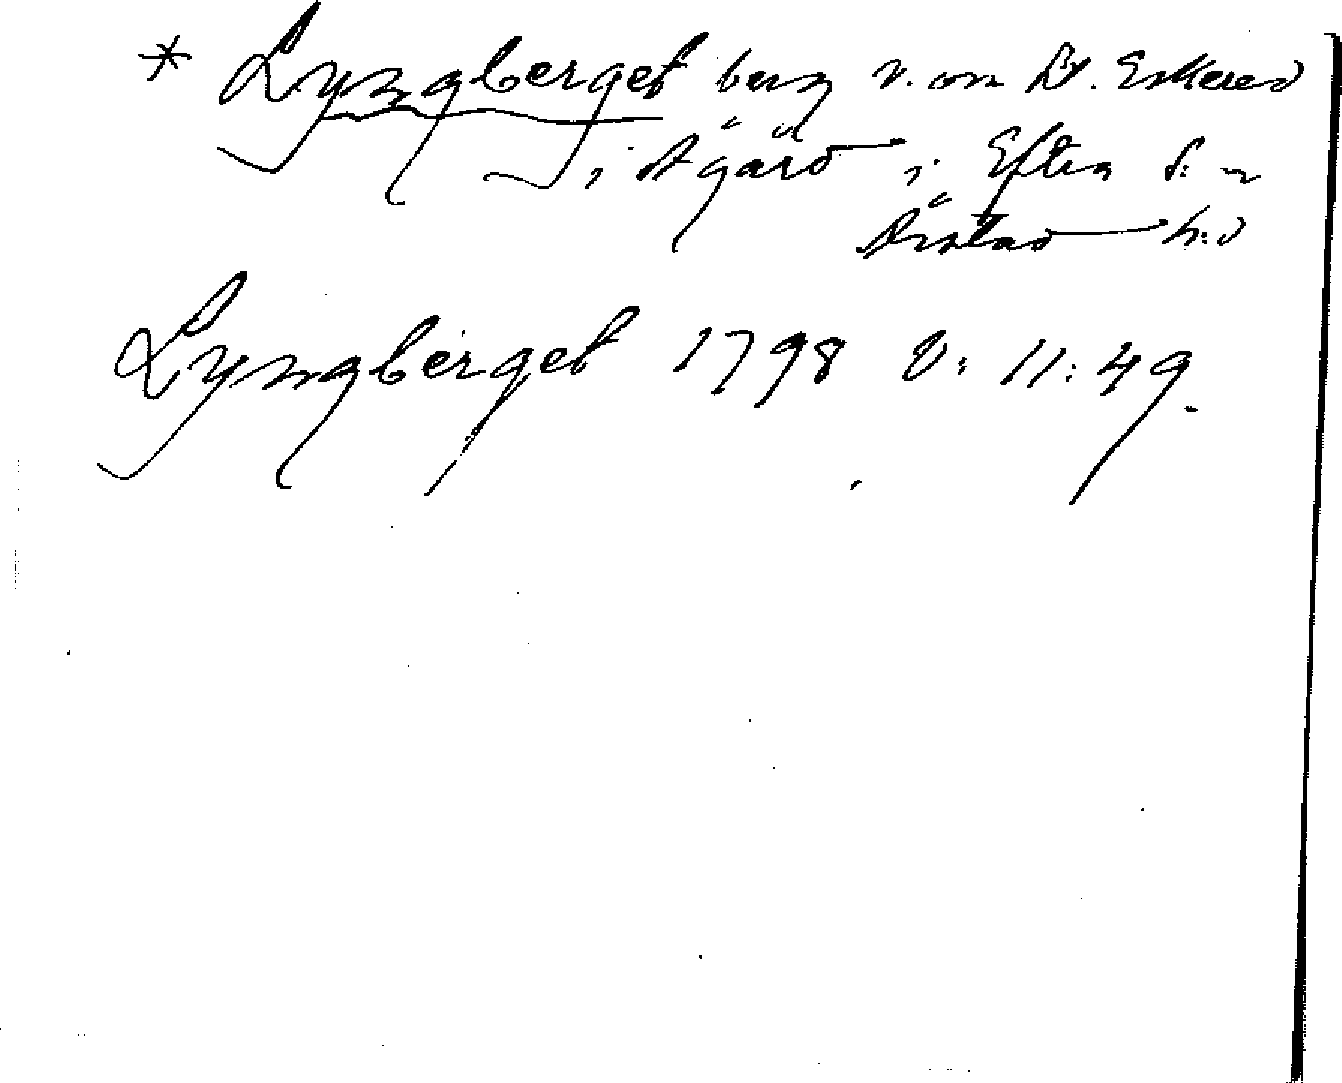 * Lyngberget berg v. om St. Eskered
i Ågärd i Eftra s:n
Årstad h:d
Lyngberget 1798 V: 11:49.